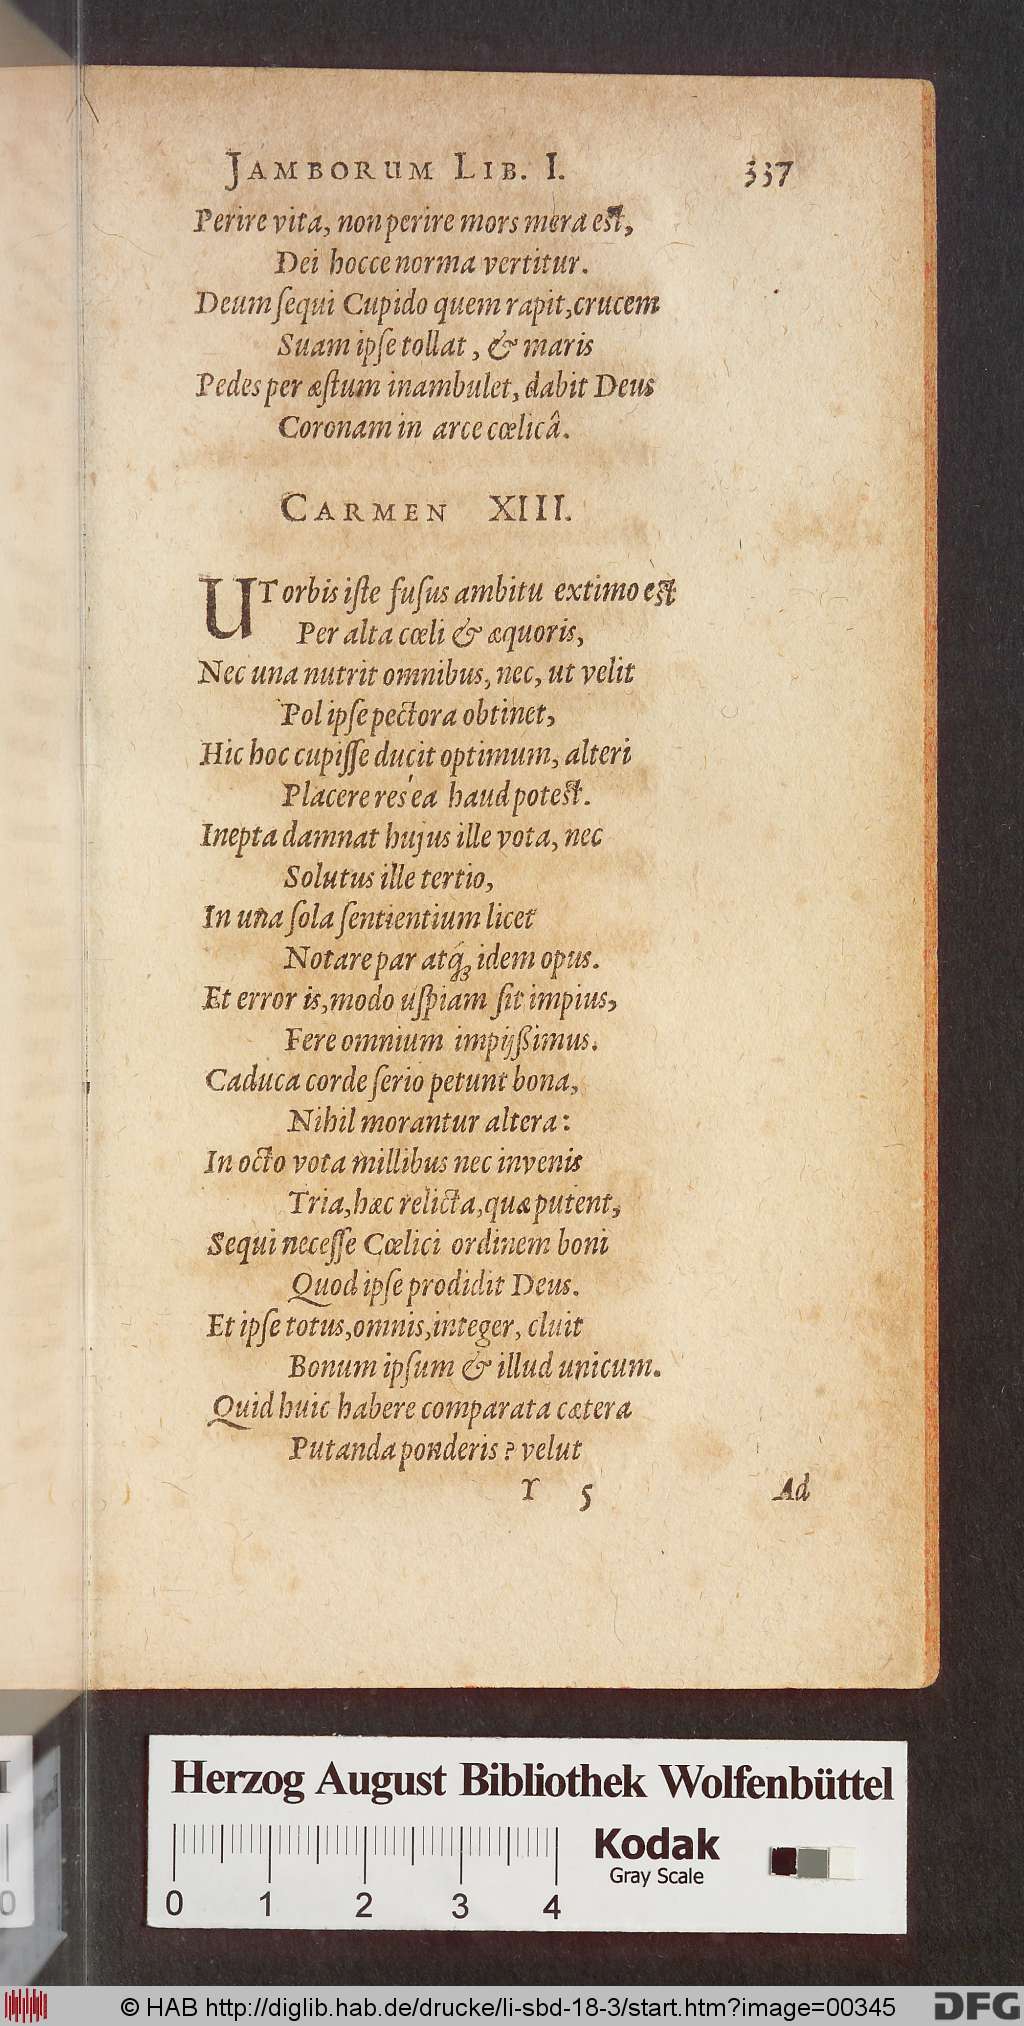 JAMBORUM LIB. I. 337
Perire vita, non perire mors mera est,
Dei hocce norma vertitur.
Deum ſequi Cupido quem rapit, crucem
Suam ipſe tollat, & maris
Pedes per æſtum inambulet, dabit Deus
Coronam in arce cœlicâ.
CARMEN XIII.
UT orbis iſte fuſus ambitu extimo est
Per alta cœli & æquoris,
Nec una nutrit omnibus, nec, ut velit
Pol ipſe pectora obtinet,
Hic hoc cupiſſe ducit optimum, alteri
Placere res ea haud potest.
Inepta damnat hujus ille vota, nec
Solutus ille tertio,
In una ſola ſentientium licet
Notare par atq́ꝫ idem opus.
Et error is, modo uſpiam ſit impius,
Fere omnium impijßimus.
Caduca corde ſerio petunt bona,
Nihil morantur altera:
In octo vota millibus nec invenis
Tria, hæc relicta, quæ putent,
Sequi neceſſe Cœlici ordinem boni
Quod ipſe prodidit Deus.
Et ipſe totus, omnis, integer, cluit
Bonum ipſum & illud unicum.
Quid huic habere comparata cætera
Putanda ponderis? velut
Y 5 Ad
Herzog August Bibliothek Wolfenbüttel
Kodak
Gray Scale
0 1 2 3 4
© HAB http://diglib.hab.de/drucke/li-sbd-18-3/start.htm?image=00345
DFG